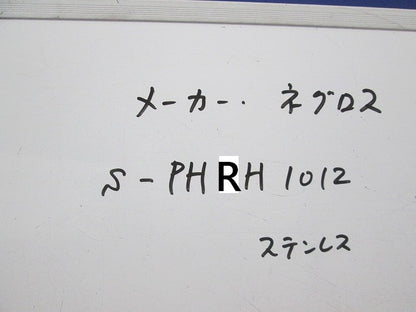 メーカー. ネグロス
S-PHRH1012
ステンレス